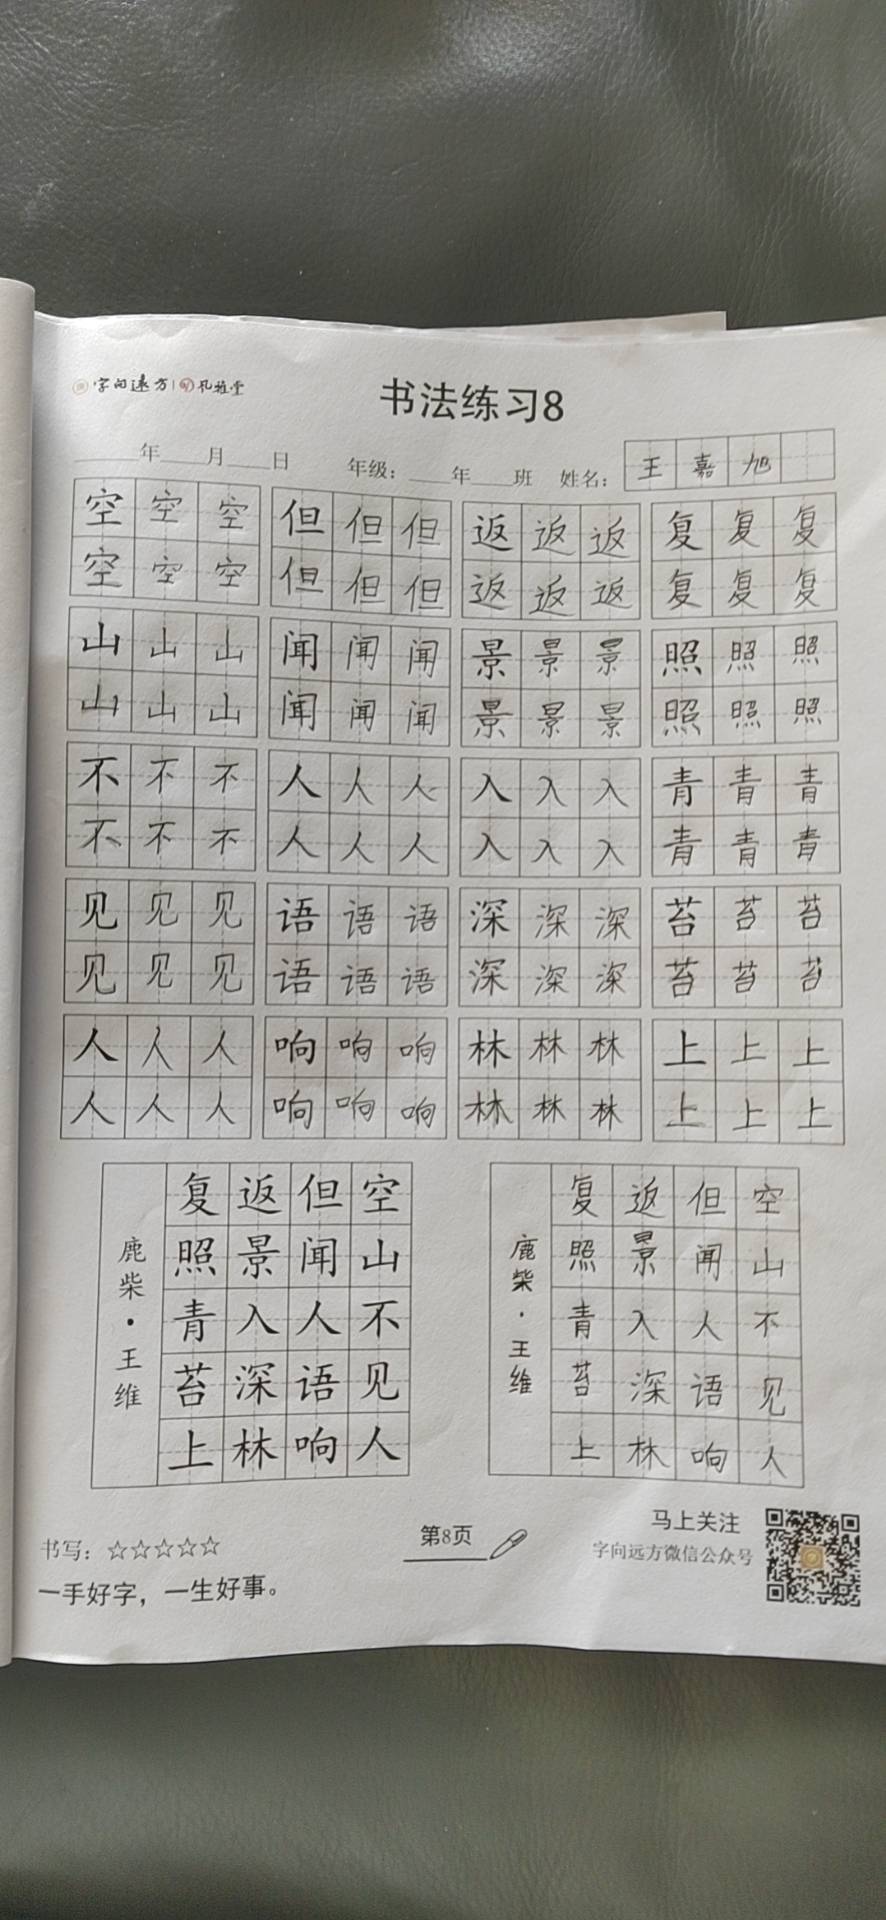 字向远方 孔雅堂
书法练习8
____年____月____日 年级：____年____班 姓名：王嘉旭
空空空 但但但 返返返 复复复
空空空 但但但 返返返 复复复
山山山 闻闻闻 景景景 照照照
山山山 闻闻闻 景景景 照照照
不不不 人人人 入入入 青青青
不不不 人人人 入入入 青青青
见见见 语语语 深深深 苔苔苔
见见见 语语语 深深深 苔苔苔
人人人 响响响 林林林 上上上
人人人 响响响 林林林 上上上
空山不见人
但闻人语响
返景入深林
复照青苔上
鹿柴·王维
空山不见人
但闻人语响
返景入深林
复照青苔上
鹿柴·王维
书写：☆☆☆☆☆
一手好字，一生好事。
第8页
马上关注
字向远方微信公众号